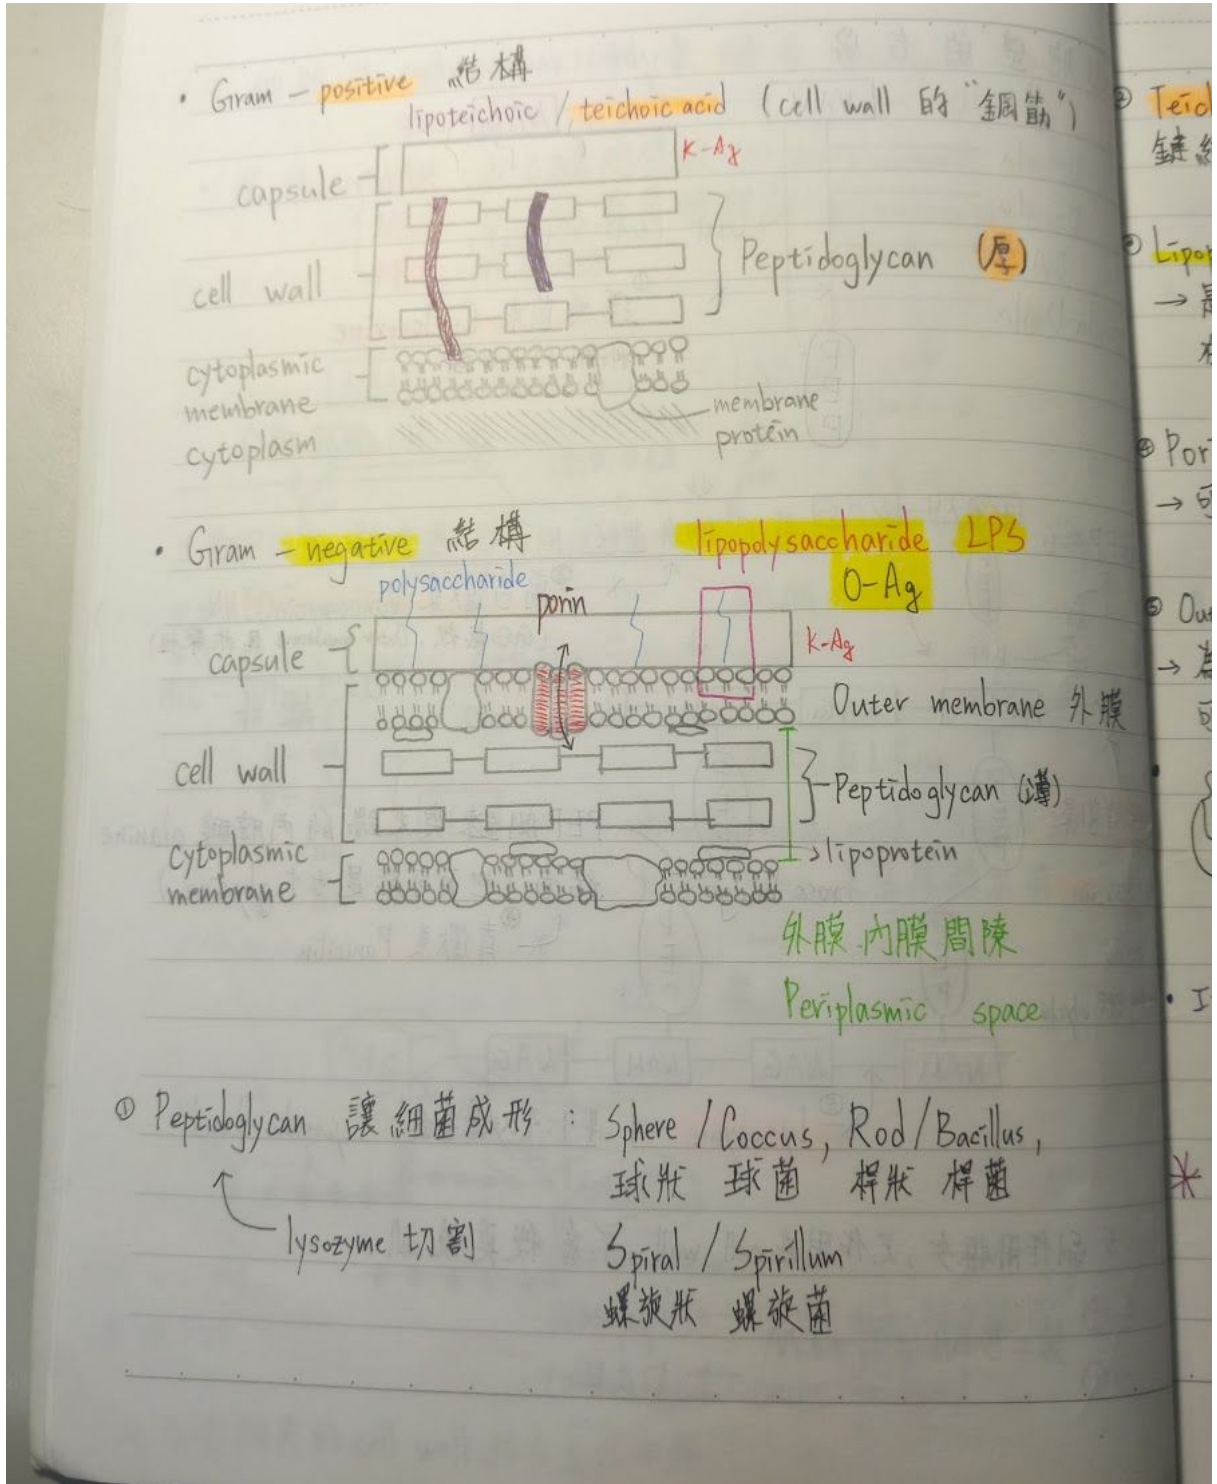 • Gram - positive 結構
lipoteichoic / teichoic acid (cell wall 的 "鋼筋")
K-Ag
capsule
cell wall
Peptidoglycan (厚)
cytoplasmic
membrane
cytoplasm
membrane
protein
• Gram - negative 結構
lipopolysaccharide LPS
O-Ag
polysaccharide
porin
capsule
K-Ag
Outer membrane 外膜
cell wall
Peptidoglycan (薄)
cytoplasmic
membrane
lipoprotein
外膜.內膜間隙
Periplasmic space
① Peptidoglycan 讓細菌成形 : Sphere / Coccus, Rod / Bacillus,
球狀 球菌 桿狀 桿菌
lysozyme 切割
Spiral / Spirillum
螺旋狀 螺旋菌
② Teic
鍵
③ Lipop
→
④ Por
→ 可
⑤ Out
→ 為
可
•
• I
*